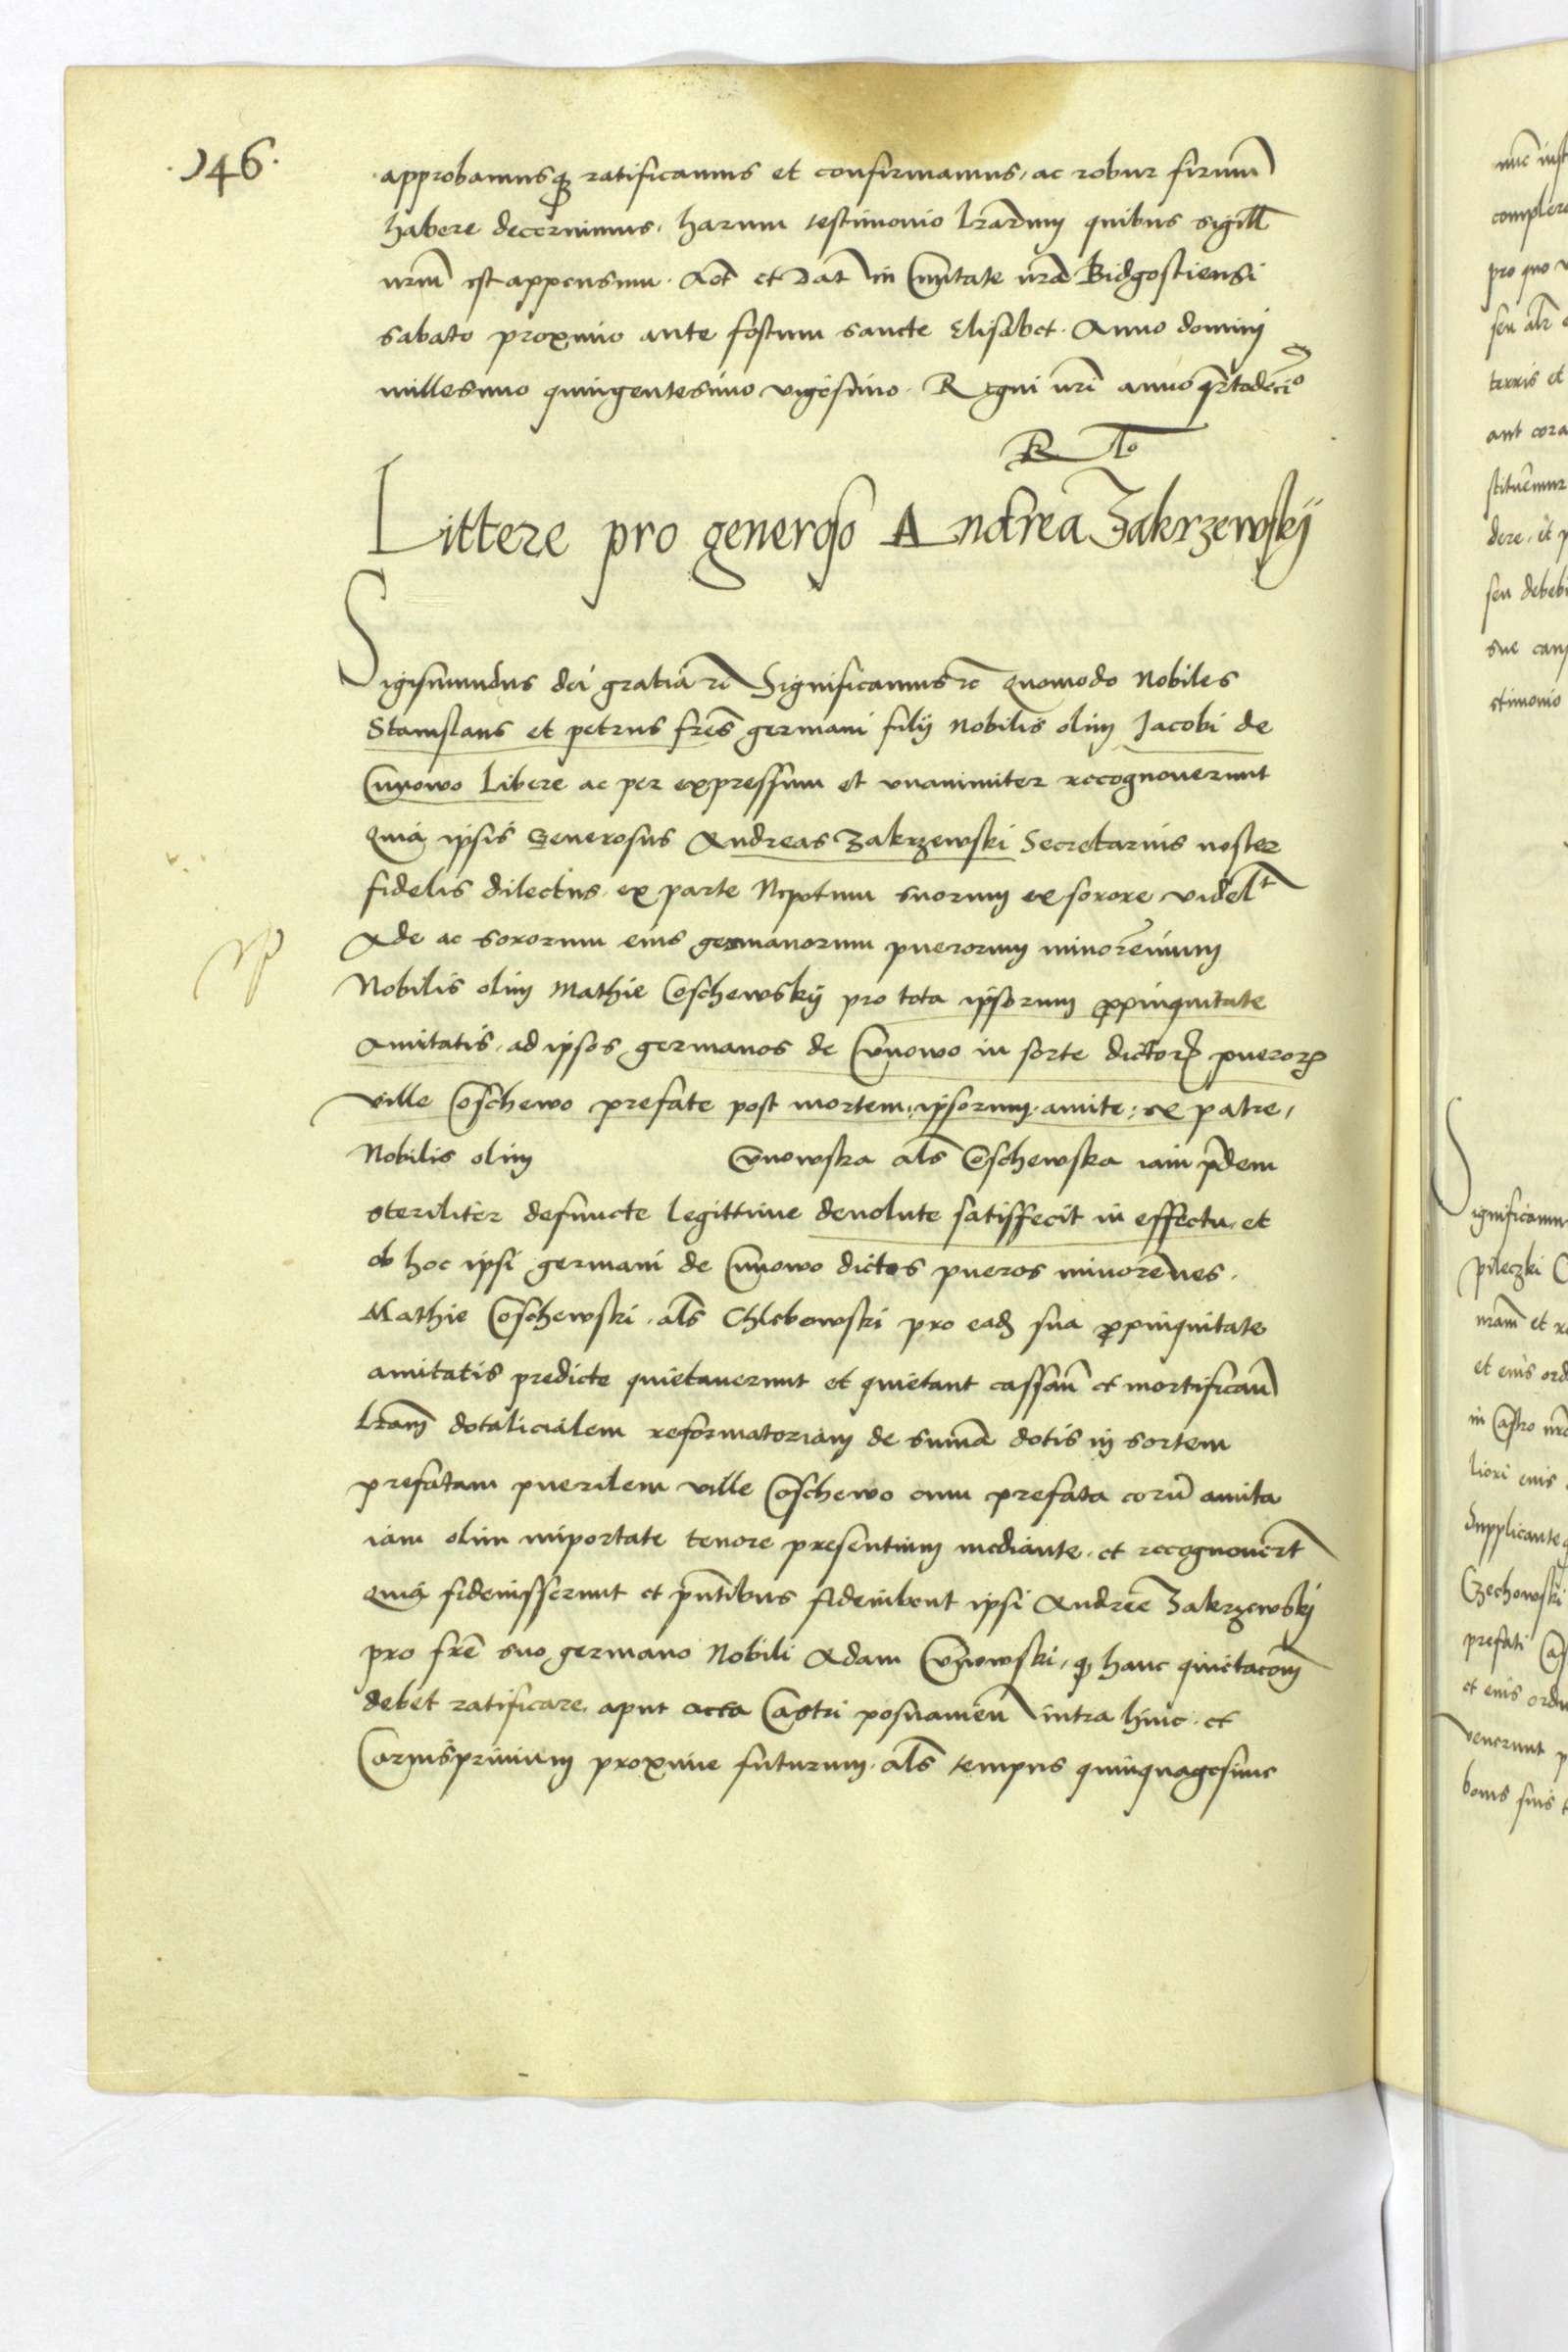 ·146·
approbamusq ratificamus et confirmamus, ac robur firmum
habere decernimus, harum testimonio lrarum quibus sigill
nrm est appensum. Act et Dat in Civitate nra Bidgostiensi
sabato proximo ante festum sancte Elisabet. Anno domini
millesimo quingentesimo vigesimo. Regni nri anno qrtodecimo
R to
Littere pro generoso Andrea Zakrzewskij
Sigismundus dei gratia rc Significamus rc Quomodo Nobiles
Stanislaus et petrus fres germani filij Nobilis olim Jacobi de
Cunowo Libere ac per expressum et unanimiter recognoverunt
Quia ipsis Generosus Andreas Zakrzewski Secretarius noster
fidelis dilectus ex parte Nepotum suorum ex sorore, videlt
Ade ac sororum eius germanorum puerorum minorennium
Nobilis olim Mathie Coschewskij pro tota ipsorum propinquitate
Amitatis, ad ipsos germanos de Cunowo in sorte dictor pueror
ville Coschewo prefate post mortem ipsorum amite ex patre,
Nobilis olim Cunowska als Coschewska iam pridem
steriliter defuncte legittime devolute satisfecit in effectu, et
ob hoc ipsi germani de Cunowo dictos pueros minorennes.
Mathie Coschewski als Chlebowski pro ead sua propinquitate
amitatis predicte quietaverunt et quietant cassan et mortifican
lram dotalicialem reformatoriam de summa dotis in sortem
prefatam puerilem ville Coschewo cum prefata eorum amita
iam olim importate tenore presentium mediante, et recognovert
Quia fideiusserunt et pntibus fideiubent ipsi Andree Zakrzewskij
pro fre suo germano Nobili Adam Cunowski, q hanc quietacom
debet ratificare, aput acta Castri posnanien intra hinc et
Carnisprivium proxime futurum als tempus quinquagesime